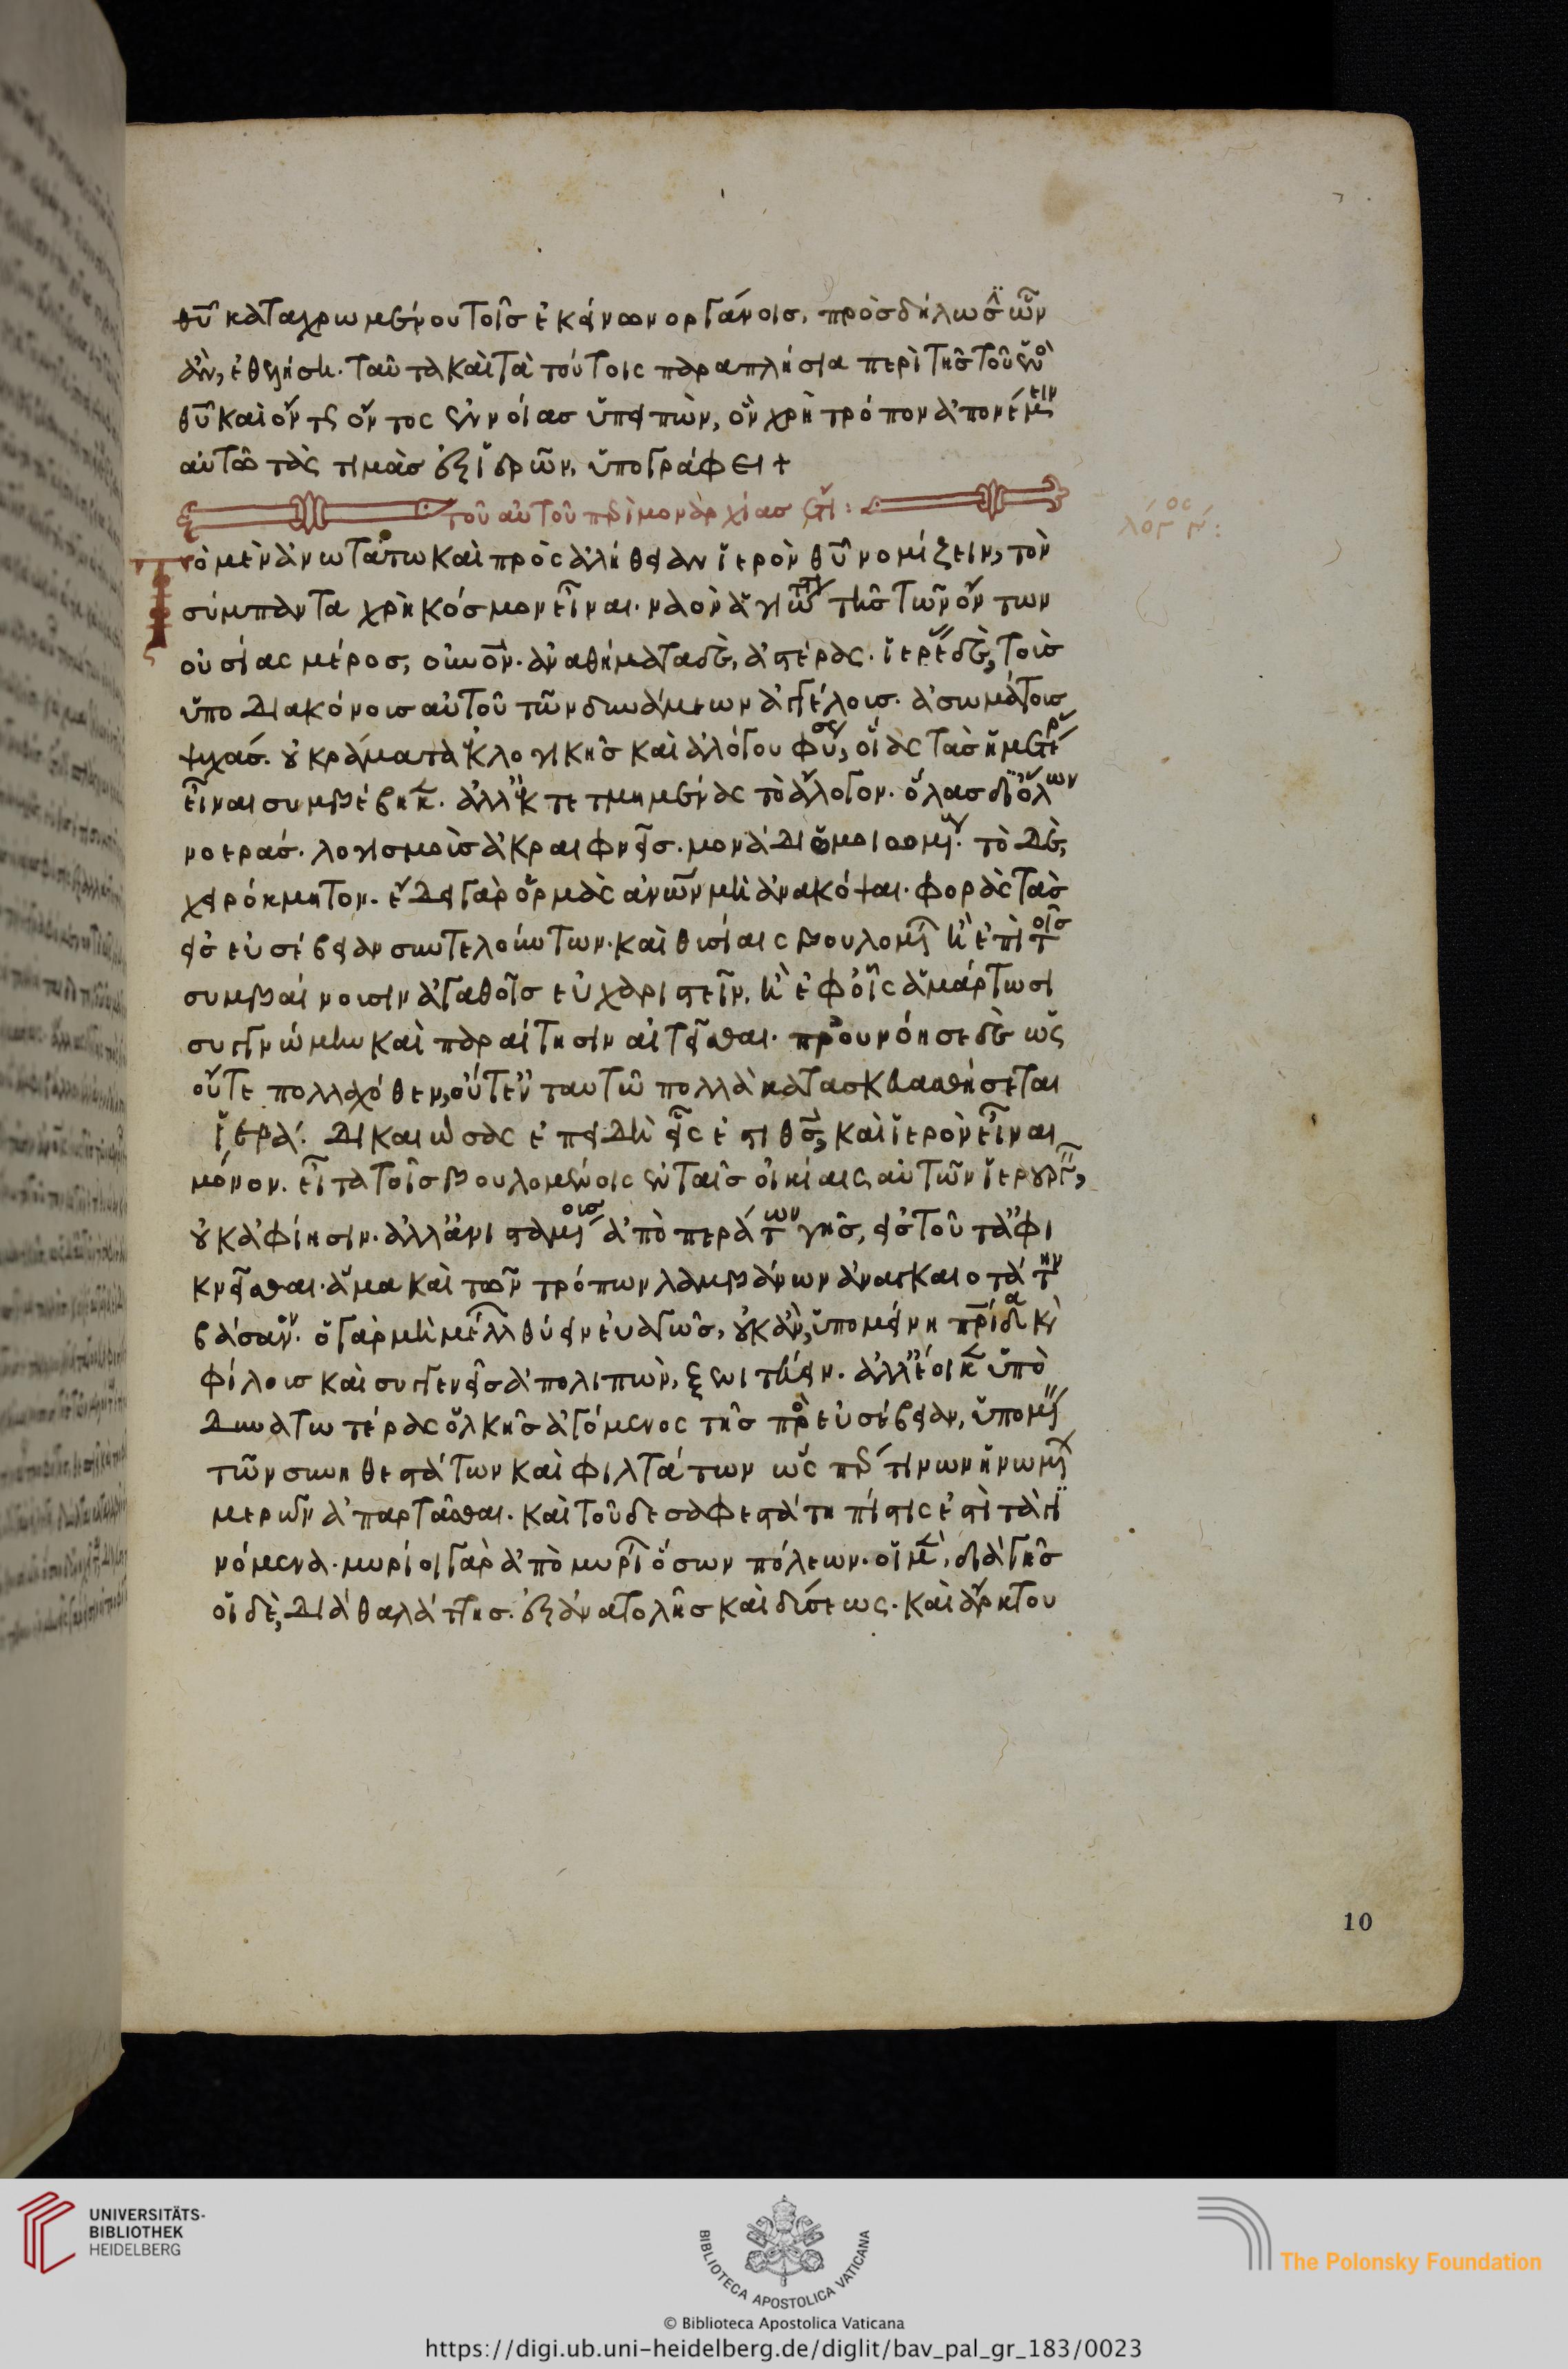 θῡ καταχρωμένου τοῖς ἐκείνων ὀργάνοις, πρὸς δήλωσ ὧν
ἂν, ἐθελήση. ταῦτα καὶ τὰ τούτοις παραπλήσια περὶ τῆς τοῦ ἑνὸ
θῡ καὶ ὄντως ὄντος ἐννοίας ὑπειπὼν, ὃν χρὴ τρόπον ἀπονέμειν
αὐτῶ τὰς τιμὰς ὑπογράφει +
τοῦ αὐτοῦ περὶ μοναρχίας
Τὸ μὲν ἀνωτάτω καὶ πρὸς ἀλήθειαν ἱερὸν θῡ νομίζειν, τὸν
σύμπαντα χρὴ κόσμον εἶναι. ναὸν ἁγιώτ τῆς τῶν ὄντων
οὐσίας μέρος, οὐνον. ἀναθήματα δὲ, ἀστέρας. ἱερε δὲ, τοὺς
ὑποδιακόνους αὐτοῦ τῶν δυνάμεων ἀγγέλους. ἀσωμάτους
ψυχάς. οὐ κράματα ἐκ λογικῆς καὶ ἀλόγου φύσε, οἵας τὰς ἡμετέρ
εἶναι συμβέβηκ. ἀλλ' ἐκτετμημένας τὸ ἄλογον. ὅλας δι' ὅλων
νοεράς. λογισμοὺς ἀκραιφνεῖς. μονάδι ὁμοιουμ. τὸ δὲ,
χειρόκμητον. ἔδει γὰρ ὁρμὰς ἀνων μὴ ἀνακόψαι. φορὰς τὰς
εἰς εὐσέβειαν συντελούντων. καὶ θυσίαις βουλομ ἢ ἐπὶ τοῖς
συμβαίνουσιν ἀγαθοῖς εὐχαριστεῖν, ἢ ἐφ' οἷς ἁμάρτωσι
συγγνώμην καὶ παραίτησιν αἰτεῖσθαι. προυνόησε δὲ ὡς
οὔτε πολλαχόθεν, οὔτ' ἐν ταυτῶ πολλὰ κατασκευασθήσεται
ἱερά. δικαιώσας ἐπειδὴ εἷς ἐστι θς, καὶ ἱερὸν ἓν εἶναι
μόνον. εἶτα τοῖς βουλομένοις ἐν ταῖς οἰκίαις αὐτῶν ἱερουργ,
οὐκ ἀφίησιν. ἀλλ' ἀνισταμένοις ἀπὸ περάτων γῆς, εἰς τοῦτ' ἀφι
κνεῖσθαι. ἅμα καὶ τῶν τρόπων λαμβάνων ἀναγκαιοτάτην
βάσαν. ὁ γὰρ μὴ μέλλ θύειν εὐαγῶς, οὐκ ἂν, ὑπομείνη πρίδα κ
φίλους καὶ συγγενεῖς ἀπολιπὼν, ξενιτεύειν. ἀλλ' ἔοικ ὑπὸ
δυνατωτέρας ὁλκῆς ἀγόμενος τῆς πρὸ εὐσέβειαν, ὑπομ
τῶν συνηθεστάτων καὶ φιλτάτων ὥς περ τινων ἡνωμ
μερῶν ἀπαρτᾶσθαι. καὶ τοῦδε σαφεστάτη πίστις ἐστὶ τὰ γι
νόμενα. μυρίοι γὰρ ἀπὸ μυρί ὅσων πόλεων. οἱ μ, διὰ γῆς
οἱ δὲ, διὰ θαλάττης. ἐξ ἀνατολῆς καὶ δύσεως. καὶ ἄρκτου
10
UNIVERSITÄTS-
BIBLIOTHEK
HEIDELBERG
BIBLIOTECA APOSTOLICA VATICANA
The Polonsky Foundation
© Biblioteca Apostolica Vaticana
https://digi.ub.uni-heidelberg.de/diglit/bav_pal_gr_183/0023